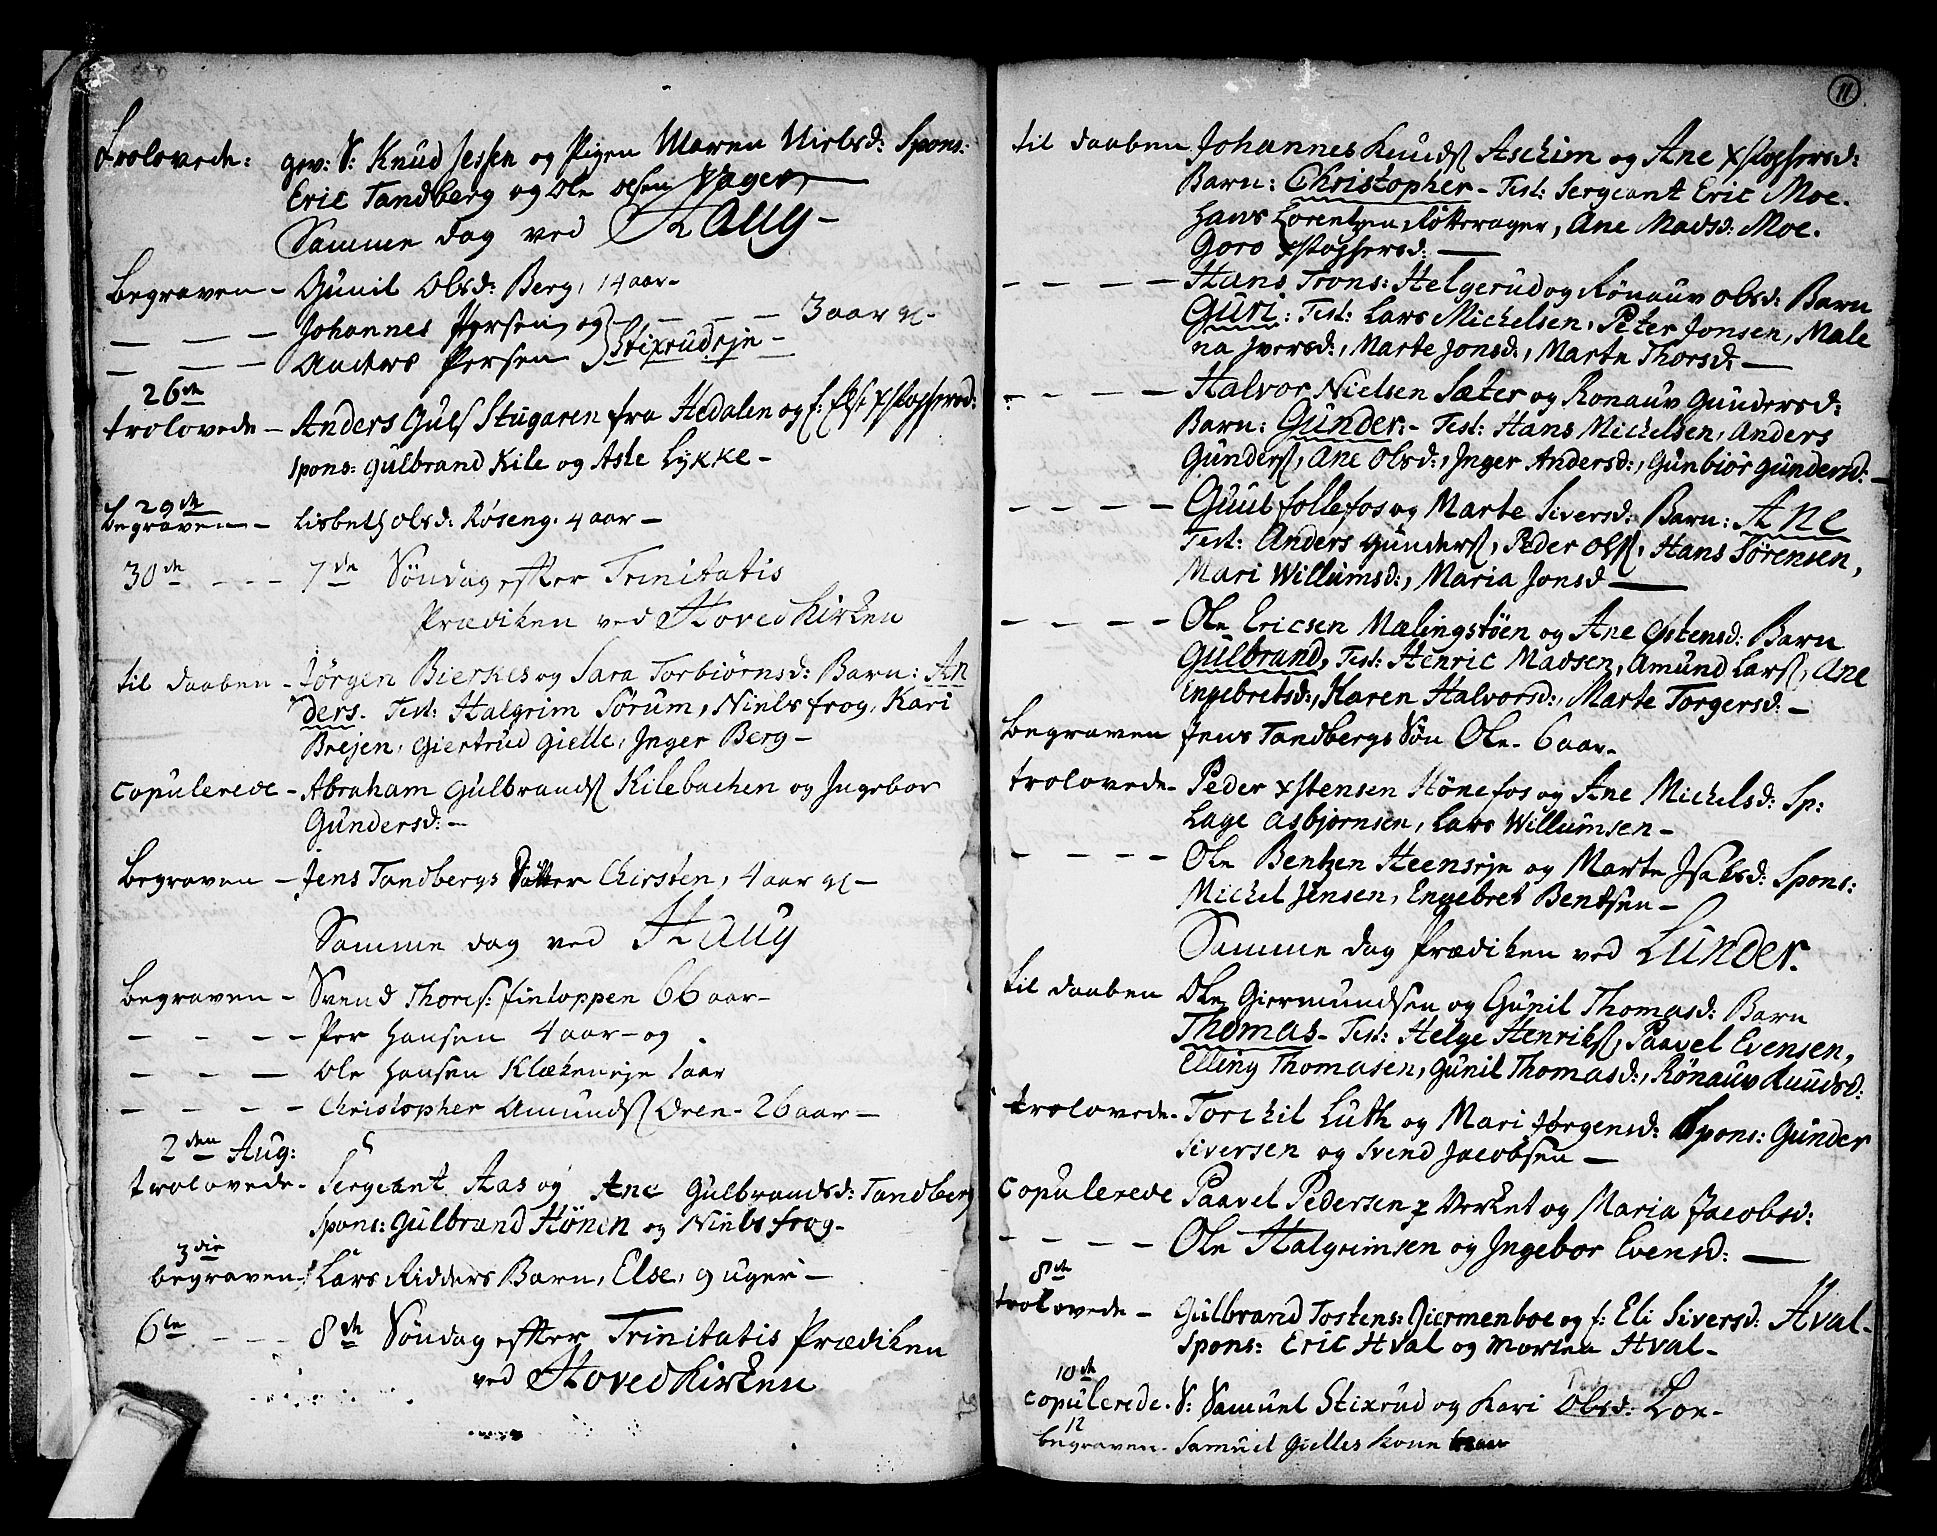 Trolovede: gev: S: Knud Jessen og Pigen Maren Nielsd: Spons:
Eric Tandberg og Ole Olsen Vager
Samme dag ved Haug –
Begraven – Gunil Olsd: Berg, 14 aar –
– – – Johannes Persen og – – – 3 aar
– – – Anders Persen Stixrudeje –
26de
trolovede – Anders Guls Stugaren fra Hedalen og f: Else xstophersd:
Spons: Gulbrand Kile og Aste Lykke –
29de
Begraven – Lisbeth Olsd: Røseng. 4 aar –
30de – – – 7de Søndag efter Trinitatis
Prædiken ved Hovedkirken
til daaben – Jørgen Bierkes og Sara Torbiørnsd: Barn: An
ders. Test: Halgrim Sørum, Niels frog, Kari
Brejen, Giertrud Gielle, Inger Berg –
copulerede – Abraham Gulbrands Kilebachen og Ingebor
Gundersd: –
Begraven – Jens Tandbergs Datter Chirsten, 4 aar –
Samme dag ved Haug
Begraven – Svend Thores: finloppen 66 aar –
– – – – Per Hansen 4 aar – og
– – – Ole Hansen Klækeneje 1 aar
– – – – Christopher Amunds Oren – 26 aar –
2den Aug:
trolovede – Sergeant Aas og Ane Gulbrandsd: Tandberg
Spons: Gulbrand Hønen og Niels frog –
3die
begraven – Lars Ridders Barn, Else, 9 uger –
6te – – – 8de Søndag efter Trinitatis Prædiken
ved Hovedkirken
11
til daaben Johannes Knuds Aschim og Ane xstophersd:
Barn: Christopher – Test: Sergeant Eric Moe.
Hans Lorentzen Rotterager, Ane Madsd: Moe.
Goro xstophersd: –
– – – – Hans Trons: Helgerud og Rønauv Olsd: Barn
Guri: Test: Lars Michelsen, Peter Jonsen, Male
na Iversd:, Marte Jonsd:, Marte Thorsd: –
– – – – Halvor Nielsen Sæter og Ronauv Gundersd:
Barn: Gunder: – Test: Hans Michelsen, Anders
Gunders, Ane Olsd:, Inger Andersd:, Gunbiør Gundersd: –
– – – – Guul follefos og Marte Siversd: Barn: Ane
Test: Anders Gunders, Peder Ols, Hans Sørensen,
Mari Willumsd:, Maria Jonsd –
– – – – Ole Ericsen Malingstøen og Ane Ostensd: Barn
Gulbrand, Test: Henric Madsen, Amund Lars, Ane
Engebretsd:, Karen Halvorsd:, Marte Torgersd: –
Begraven Jens Tandbergs Søn Ole – 6 aar –
trolovede – Peder xstensen Hønefos og Ane Michelsd: Sp:
Lage Asbjørnsen, Lars Willumsen –
– – – – Ole Bentzen Heenseje og Marte Isaksd: Spons:
Michel Jensen, Engebret Bentsen –
Samme dag Prædiken ved Lunder.
til daaben Ole Giermundsen og Gunil Thomasd: Barn
Thomas – Test: Helge Henriks, Paavel Evensen,
Elling Thomasen, Gunil Thomasd:, Rønauv Knudsd:
trolovede – Torchil Luth og Mari Jørgensd: Spons: Gunder
Siversen og Svend Jacobsen –
copulerede Paavel Pedersen Verket og Maria Jacobsd:
– – – – Ole Halgrimsen og Ingebor Evensd: –
8de
trolovede – Gulbrand Tostens: Diermenboe og f: Eli Siversd: Hval –
Spons: Eric Hval og Morten Hval –
10de
copulerede. S: Samuel Stixrud og Kari Olsd: Loe –
12
begraven – Samuel Gielles kone